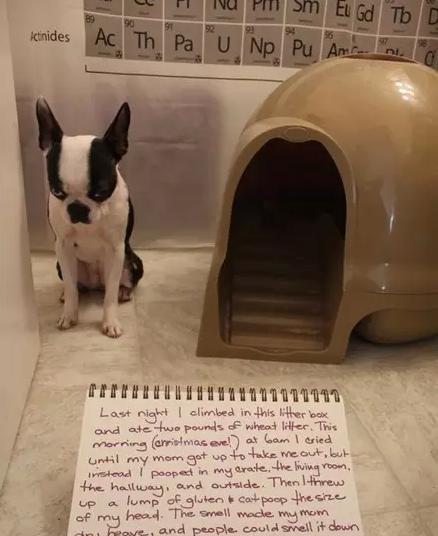 Ce Pr Nd Pm Sm Eu Gd Tb D
Actinides 89 Ac 90 Th 91 Pa 92 U 93 Np 94 Pu 95 Am 96 97 98
Last night I climbed in this litter box
and ate two pounds of wheat litter. This
morning (christmas eve!) at 6am I cried
until my mom got up to take me out, but
instead I pooped in my crate, the living room,
the hallway, and outside. Then I threw
up a lump of gluten & cat poop the size
of my head. The smell made my mom
dry heave, and people could smell it down